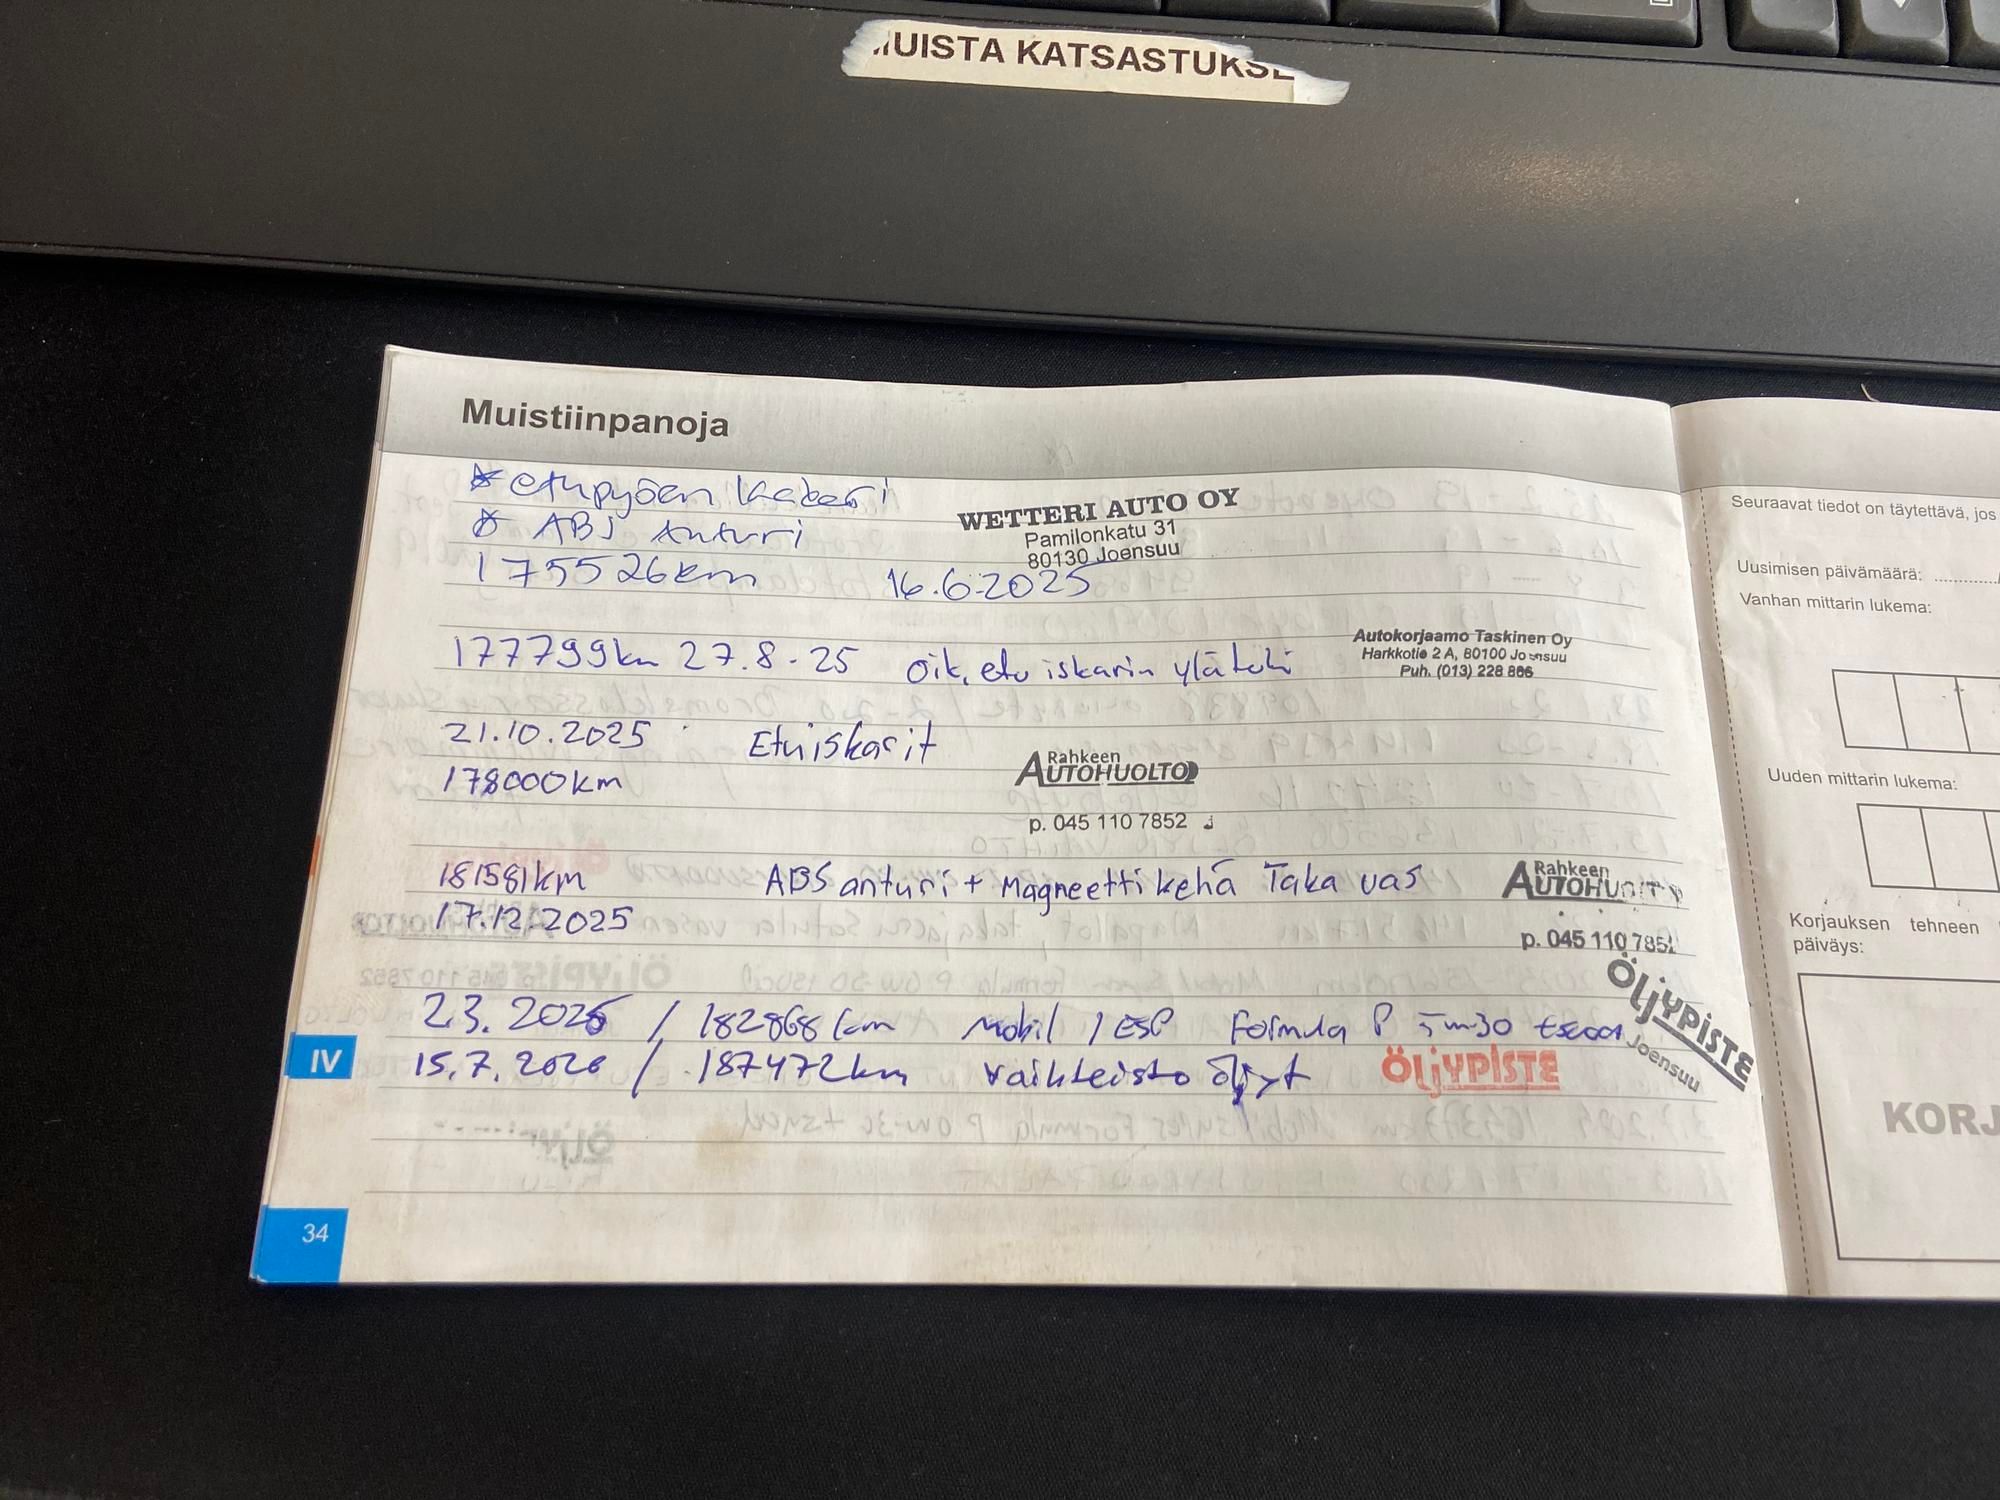 UISTA KATSASTUKSE
Muistiinpanoja
* etupyöen laakeri
* ABS Anturi
WETTERI AUTO OY
Pamilonkatu 31
80130 Joensuu
175526km 16.6.2025
177799km 27.8.25 oik, etu iskarin ylätuki
Autokorjaamo Taskinen Oy
Harkkotie 2 A, 80100 Joensuu
Puh. (013) 228 866
21.10.2025 Etuiskarit
178000km
Rahkeen
AUTOHUOLTO
p. 045 110 7852
181581km ABS anturi + Magneettikehä Taka vas
17.12.2025
Rahkeen
AUTOHUOLTO
p. 045 110 7852
2.3.2026 / 182868km Mobil 1 ESP Formula P 5w-30
ÖljYPISTE
Joensuu
15.7.2026 / 187472km Vaihteisto öljyt
ÖljYPISTE
IV
34
Seuraavat tiedot on täytettävä, jos
Uusimisen päivämäärä:
Vanhan mittarin lukema:
Uuden mittarin lukema:
Korjauksen tehneen
päiväys:
KORJ